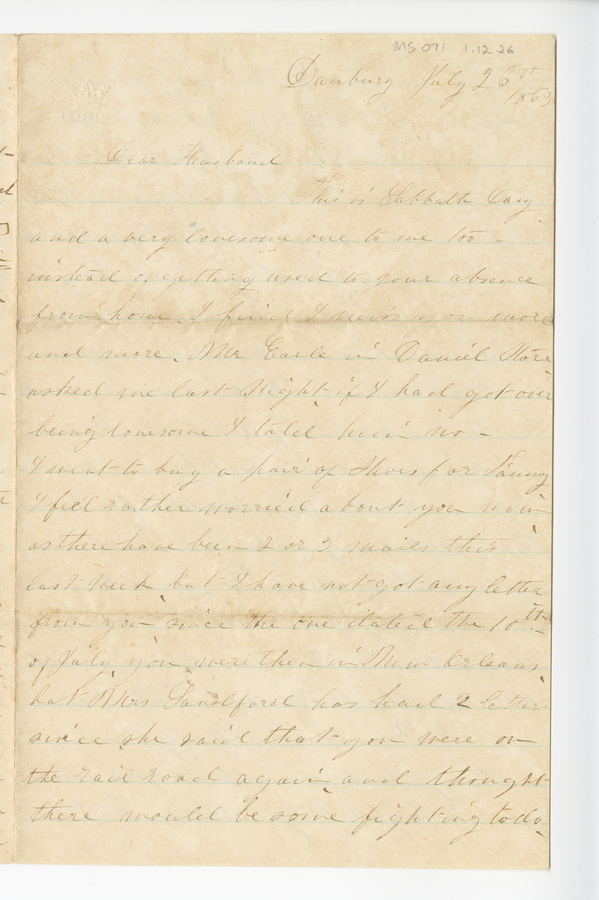 MS 071 1.12.26
Danbury July 26th
1863
Dear Husband
This is Sabbath Day
and a very lonesome one to me too -
instead of getting used to your absence
from home I find I miss you more
and more. Mr Earle in Daniel Store
asked me last Night if I had got over
being lonesome I told him no -
I went to buy a pair of Shoes for Fanny
I feel rather worried about you now
as there have been 2 or 3 mails this
last week but I have not got any letter
from you since the one dated the 10th
of July, you were then in New Orleans,
but Mrs Sandford has had 2 letters
since she said that you were on
the rail road again and thought
there would be some fighting to do